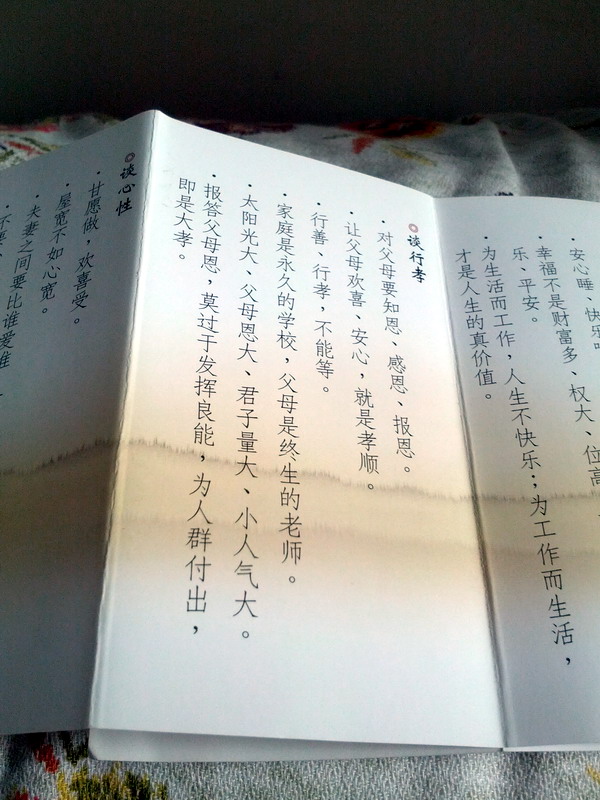 安心睡、快乐
幸福不是财富多、权大、位高
乐、平安。
为生活而工作，人生不快乐；为工作而生活，
才是人生的真价值。
谈行孝
·对父母要知恩、感恩、报恩。
·让父母欢喜、安心，就是孝顺。
·行善、行孝，不能等。
·家庭是永久的学校，父母是终生的老师。
·太阳光大、父母恩大、君子量大、小人气大。
·报答父母恩，莫过于发挥良能，为人群付出，
即是大孝。
谈心性
·甘愿做，欢喜受。
·屋宽不如心宽。
·夫妻之间要比谁爱谁
·不要